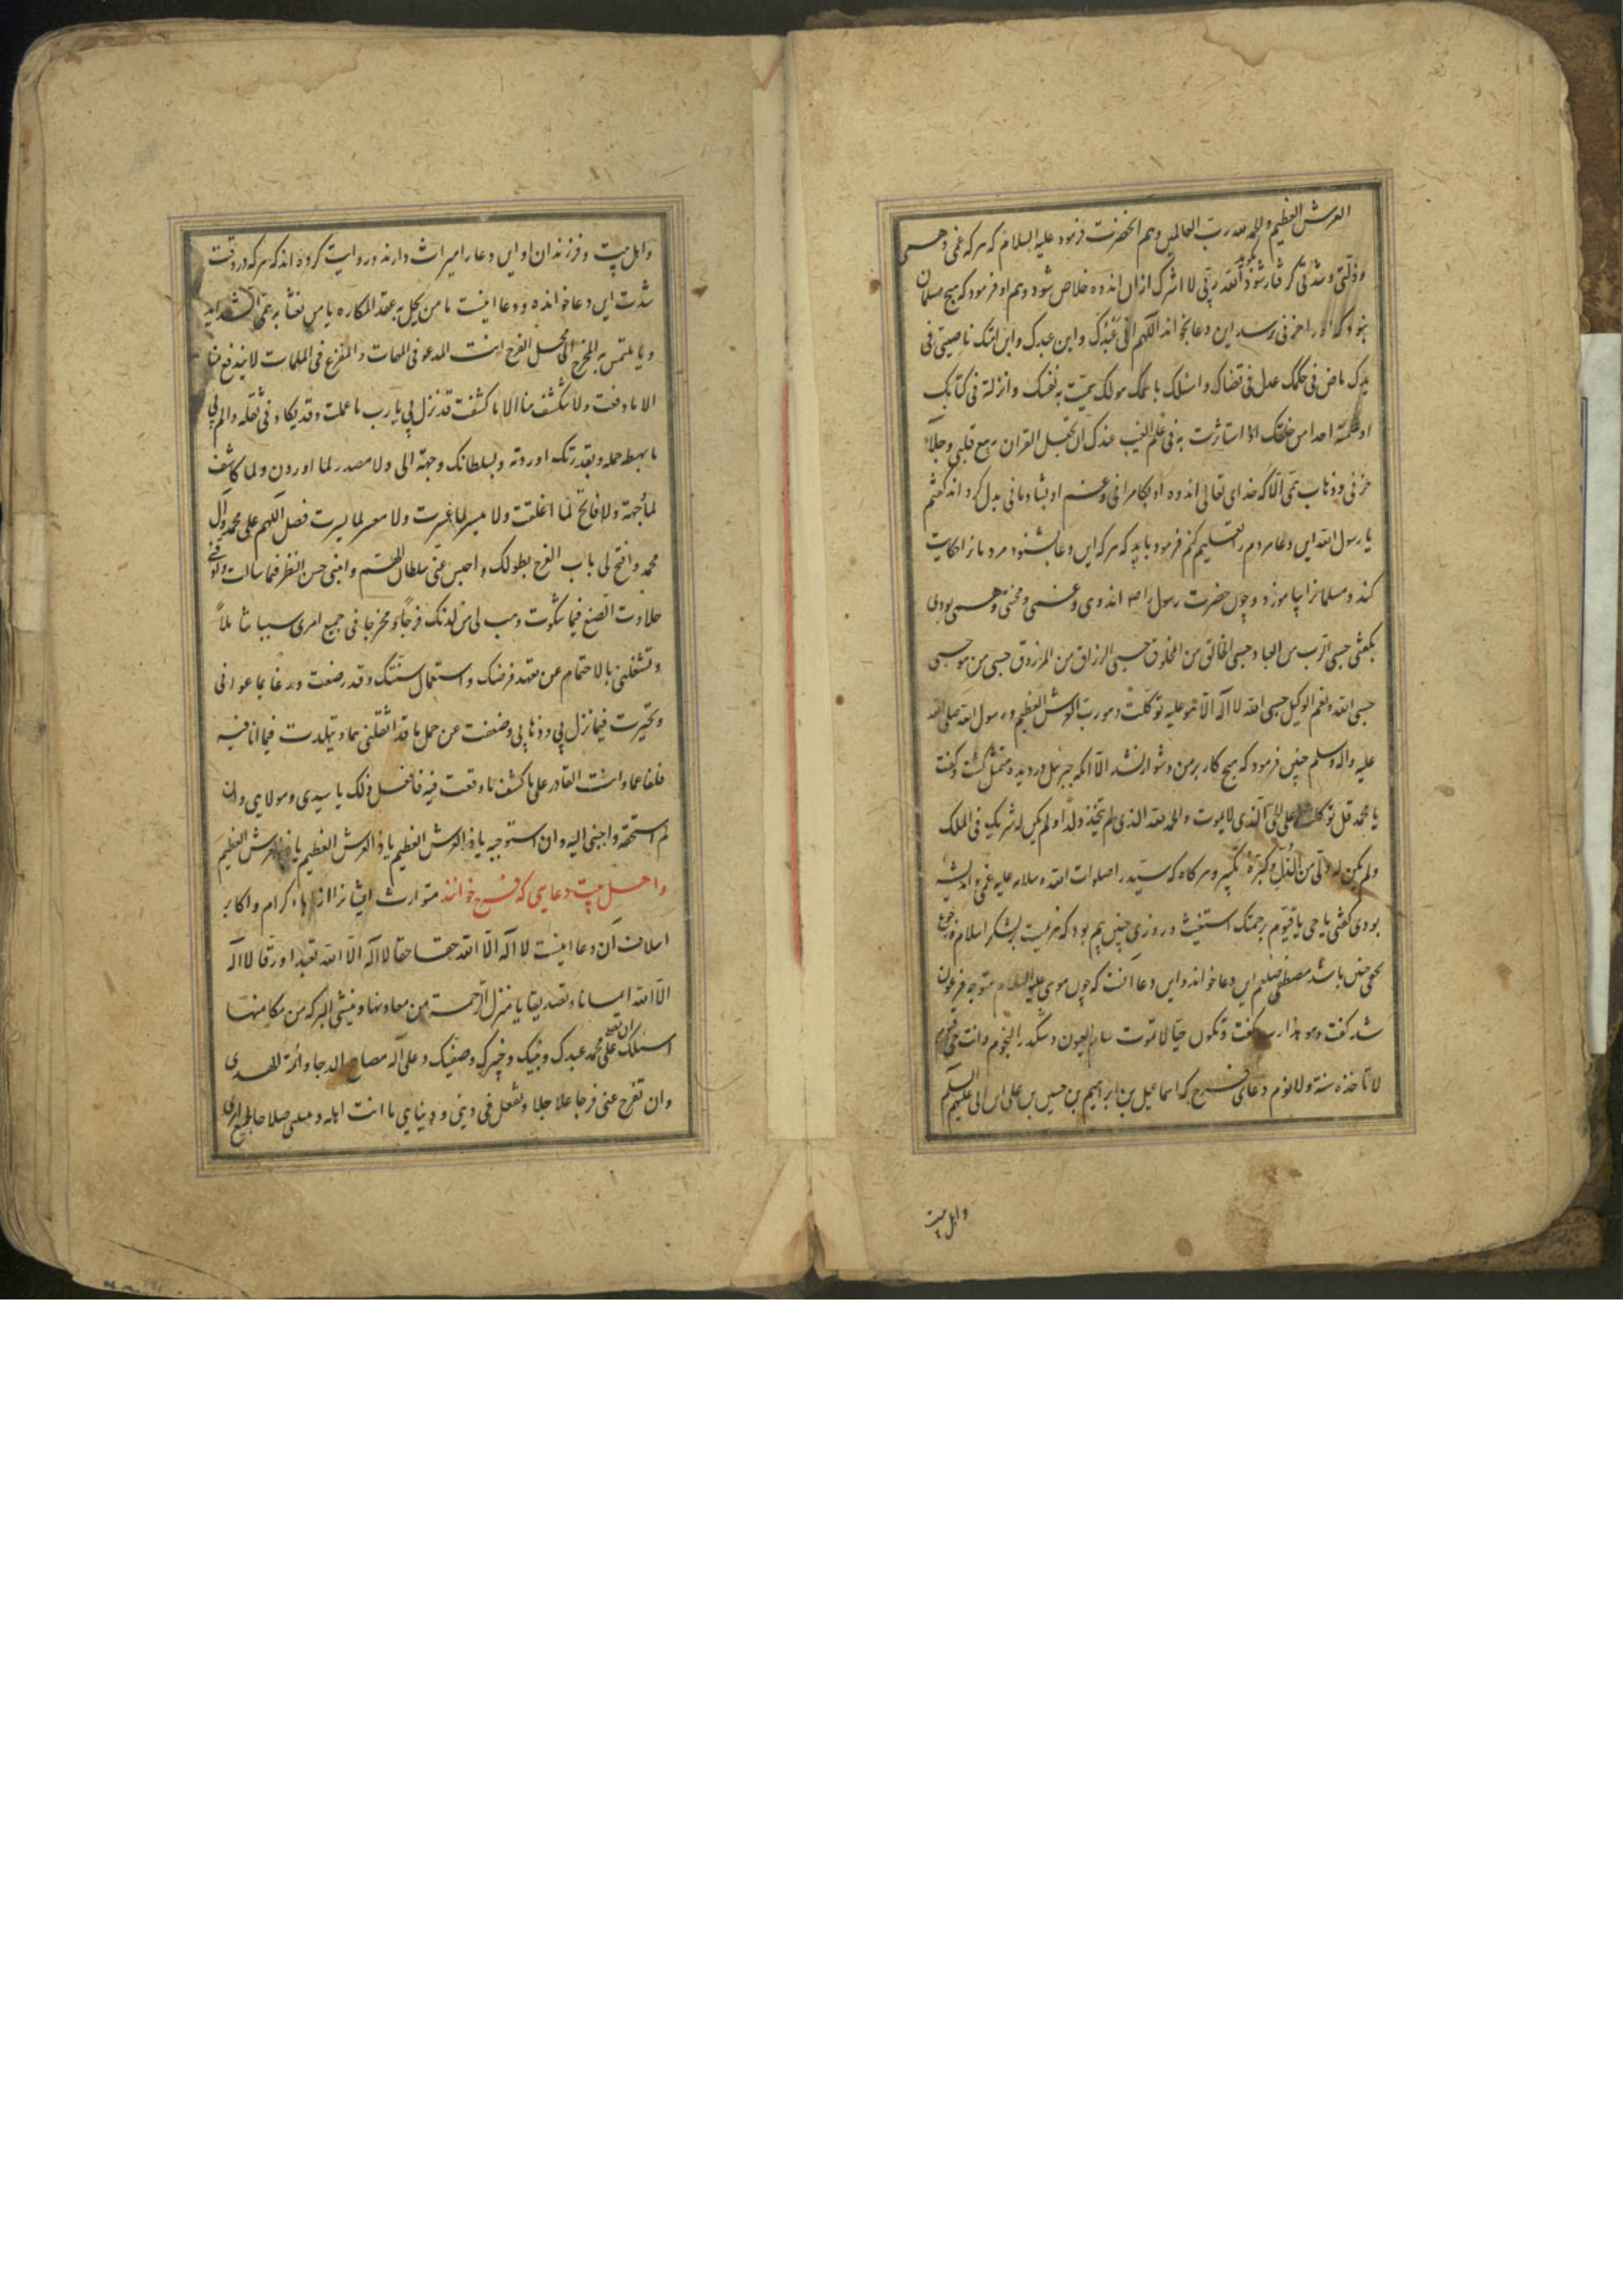 العرش العظیم والحمد لله رب العالمین و هم آنحضرت فرمود علیه السلام که هر که غمی و همی
و ذلتی و شدتی گرفتار شود بگوید الله ربی لا اشرک ازان اندوه خلاص شود و هم او فرمود که هیچ مسلمان
بنود که او را حزنی رسد این دعا بخواند اللهم انی عبدک و ابن عبدک و ابن امتک ناصیتی فی
یدک ماض فی حکمک عدل فی قضاک و اسئلک باسمک هو لک سمیت به نفسک و انزلته فی کتابک
او علمته احدا من خلقک او استاثرت به فی علم الغیب عندک ان تجعل القران ربیع قلبی و جلاء
حزنی و ذهاب همی الا که خدای تعالی اندوه او بکامرانی و غم او بشادمانی بدل کرداند گفتم
یا رسول الله این دعا مردم را تعلیم کنم فرمود باید که هر که این دعا بشنود مردمانرا حکایت
کند و مسلمانرا بیاموزد و چون حضرت رسول را ص اندوی و غمی و محنی و همی بودی
بگفتی حسبی الرب من العباد حسبی الخالق من المخلوق حسبی الرازق من المرزوق حسبی من هو حسبی
حسبی الله و نعم الوکیل حسبی الله لا اله الا هو علیه توکلت و هو رب العرش العظیم و رسول الله صلی الله
علیه واله وسلم چنین فرمود که هیچ کار بر من دشوار نشد الا انکه جبرئیل در دیده متمثل گشت و گفت
یا محمد قل توکلت علی الحی الذی لا یموت و الحمد لله الذی لم یتخذ ولدا و لم یکن له شریک فی الملک
و لم یکن له ولی من الذل و کبره تکبیرا و هر کاه که سید را صلوات الله و سلامه علیه غمی و اندیشه
بودی گفتی یا حی یا قیوم برحمتک استغیث و روزی چنین بیم بود که هزیمت بر لشکر اسلام
چنین باشد مصطفی صلعم این دعا خواند و این دعا انست که چون موسی علیه السلام متوجه فرعون
شد گفت و هو هذا کنت و تکون حیا لا تموت تنام العیون و تنکدر النجوم و انت حی قیوم
لا تاخذه سنة و لا نوم دعای فرج که اسماعیل بن ابراهیم بن حسین بن علی
و اهل بیت
و اهل بیت و فرزندان او این دعا را میراث دارند و روایت کرده اند که هر که در وقت
شدت این دعا خوانده و دعا اینست یا من یحل به عقد المکاره یا من یفثا به حمی الشداید
و یا من یلتمس به المخرج الی محل الفرج انت المدعو فی المهمات و المفزع فی الملمات لا یندفع منها
الا ما دفعت و لا ینکشف منها الا ما کشفت قد نزل بی یا رب ما علمت و قد یکاد فی ثقله و الم بی
ما بهظنی حمله و بقدرتک اوردته و بسلطانک وجهته الی و لا مصدر لما اوردت و لا کاشف
لما وجهته و لا فاتح لما اغلقت و لا میسر لما عسرت و لا معسر لما یسرت فصل اللهم علی محمد وآل
محمد و افتح لی باب الفرج بطولک و احبس عنی سلطان الهم و انلنی حسن النظر فیما سالت
حلاوت الصنع فیما شکوت و هب لی من لدنک فرجا و مخرجا فی جمیع امری سببا شاملا
و تشغلنی بالاهتمام عن تعهد فرضک و استعمال سنتک و قد ضعفت
و تحیرت فیما نزل بی و ضعفت عن حمل ما قد اثقلنی و تبلدت فیما انا فیه
و انت القادر علی کشف ما وقعت فیه فافعل ذلک یا سیدی و مولای و ان
لم استحقه و اجبنی الیه و ان لم استوجبه یا ذا العرش العظیم یا ذا العرش العظیم یا ذا العرش العظیم
و اهل بیت دعایی که فرج خوانند متوارث ایشانرا از اباء کرام و اکابر
اسلاف آن دعا اینست لا اله الا الله حقا حقا لا اله الا الله تعبدا و رقا لا اله
الا الله ایمانا و تصدیقا یا منزل الرحمة من معادنها و منشی البرکه من مکامنها
اسئلک ان تصلی علی محمد عبدک و نبیک و خیرتک و صفیک و علی اله مصابح الدجا و ائمة الهدی
و ان تفرج عنی فرجا عاجلا و تفعل فی دینی و دنیای ما انت اهله و صلاحا لجمیع امری